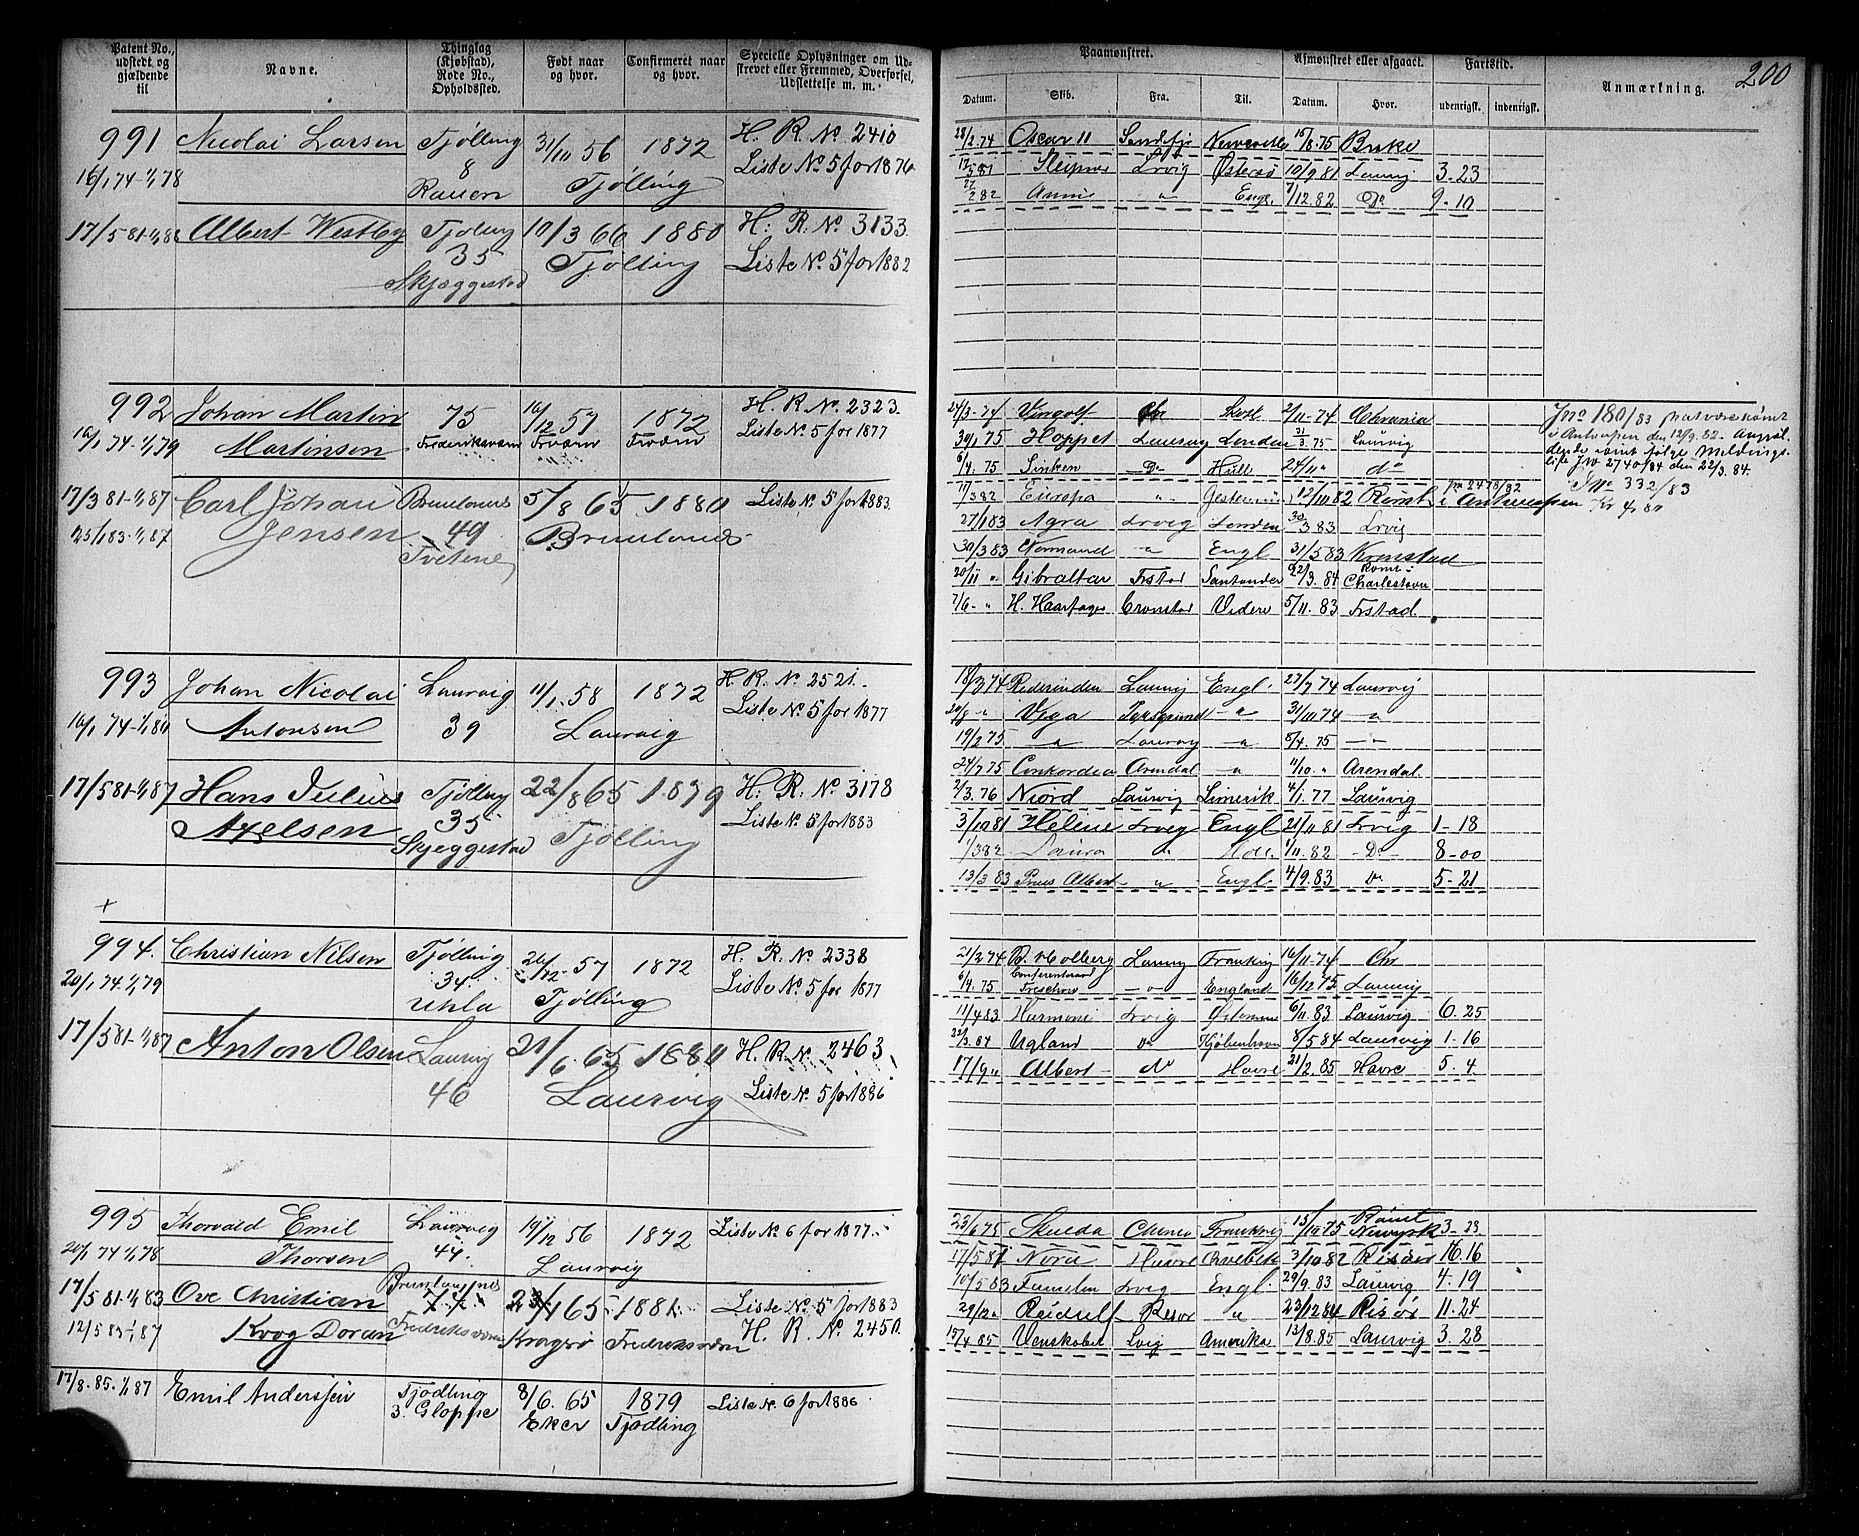 Patent No., udstedt og gjældende til
Navne.
Thinglag (Kjøbstad), Rode No., Opholdssted.
Født naar og hvor.
Confirmeret naar og hvor.
Specielle Oplysninger om Udstrevet eller Fremmed, Overførsel, Udslettelse m. m.
Paamønstret.
Datum.
Skib.
Fra.
Til.
Afmønstret eller afgaaet.
Datum.
Hvor.
Fartstid.
udenrigsk.
indenrigsk.
Anmærkning.
200
991 Nicolai Larsen Tjølling 31/10 56 1872 H. R. No 2410
16/1 74-1/1 78 8 Rauen Tjølling Liste No 5 for 1876
28/2 74 Oscar II Sandefj. 15/8 75 Brake
12/5 81 Sleipner Lrvig Østersø 10/9 81 Laurvig 3. 23
27/2 82 Annie " Engl. 7/12. 82 Do 9-10
17/5 81-1/1 86 Albert Westby Tjølling 10/3 66 1880 H. R. No. 3133.
35 Skjeggestad Tjølling Liste No. 5 for 1882
992 Johan Martin 75 16/12 57 1872 H. R. No. 2323.
16/1 74-1/1 79 Martinsen Frederiksværn Frværn Frværn Liste No. 5 for 1877
24/3-74 Vingolf Chr 2/11-74 Christiania
30/1 75 Hoppet Laurvig London 31/3. 75 Laurvig
6/4. 75 Sinken Do Hull 24/11 " do
17/3 82 Europa " 12/10 82 Rømt i Antwerpen
27/1 83 Agra Lrvig London 30/3 83 Lrvig
30/3 83 Normand " Engl 31/5 83 Kronstad
20/11 " Gibraltar Frstad Santander 22/3. 84 Rømt i Charlestown
7/6- " H. Haarfager Cronstad Videre 5/11. 83 Frstad.
Jno 180/83
i Antwerpen den 12/9. 82.
Jno 2740/84 den 22/3. 84.
Jno 332/83
17/3 81-1/1 87 Carl Johan Brunlanes 5/8 65 1880 Liste No. 5 for 1883.
25/1 83-1/1 87 Jensen 49 Tvetene Brunlanes
993 Johan Nicolai Laurvig 11/1. 58 1872 H. R. No. 2521.
16/1 74-1/1 80 Antonsen 39 Laurvig Liste No. 5 for 1877
18/3 74 Rederinden Laurvig Engl. 27/7 74 Laurvig
20/8 -" Vega Porsgrund -" 31/10 74 -"
19/2 75 -" Laurvig -" 8/4. 75 -"
24/7 75 Concordia Arendal -" 11/10. " Arendal.
2/3. 76 Niord Laurvig Limerik 4/1. 77 Laurvig
3/10 81 Helene Lrvig Engl 21/11 81 Lrvig 1-18
1/3 82 Laura " 1/11. 82 -Do- 8-00
13/3 83 Prins Albert " Engl 4/9. 83 Do 5-21
17/5 81-1/1 87 Hans Julius Tjølling 22/8 65 1879 H. R. No 3178
Axelsen 35 Skjeggestad Tjølling Liste No. 5 for 1883
994. Christian Nilsen Tjølling 26/12. 57 1872 H. R. No 2338
20/1 74 1/1 79 34 Uhla Tjølling Liste No. 5 for 1877
21/3 74 B. Holberg Laurvig Frankrig 16/11. 74 Chr
6/4. 75 Conferentsraad Treschow -"- England 16/12 75 Laurvig
11/4 83 Harmoni Lrvig 6/11. 83 Laurvig 6. 25
22/3. 84 Ugland Do Kjøbenhavn 8/5 84 Laurvig 1-16
17/9 " Albert do Havre 21/2. 85 Havre 5. 4
17/5 81-1/1 87 Anton Olsen Laurvig 21/6. 65 1880 H. R. No. 2463
46 Laurvig Liste No. 5 for 1886
995 Thorvald Emil Laurvig 19/12 56 1872 Liste No. 6 for 1877.
20/1 74 1/1 78 Thorsen 44. Laurvig
23/6 75 Skulda Frankrig 15/10 75 Rømt Newyork 3-23
17/5 81 Nora Havre 3/10 82 Risøer 16. 16
10/5 83 Familien Lrvig Engl 29/9. 83 Laurvig 4. 19
29/12 " Reidulf Risør " 23/12 84 Risør 11. 24
15/4 85 Venskabet Lvig Amerika 13/8. 85 Laurvig 3. 28
17/5 81-1/1 83 Ove Christian Brunlanæs 23/1 65 1881 Liste No. 5 for 1883
12/5 83 1/1 87 Krog Doran 77 Frederiksværn Kragerø Frederiksværn H. R. No. 2450.
17/8. 85. 1/1 87 Emil Anderssen Tjødling 8/6. 65 1879 Liste No. 6 for 1886
3. Gloppe Eker Tjødling